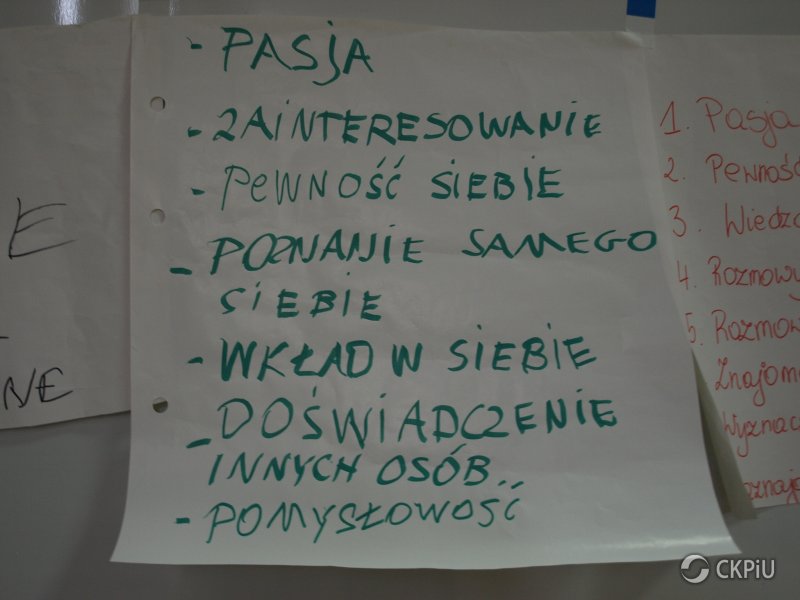 - PASJA
- ZAINTERESOWANIE
- PEWNOŚĆ SIEBIE
- POZNANIE SAMEGO
SIEBIE
- WKŁAD W SIEBIE
- DOŚWIADCZENIE
INNYCH OSÓB..
- POMYSŁOWOŚĆ
E
NE
1. Pasja
2. Pewność
3. Wiedza
4. Rozmowy
5. Rozmow
Znajom
Wyznac
oznają
CKPiU